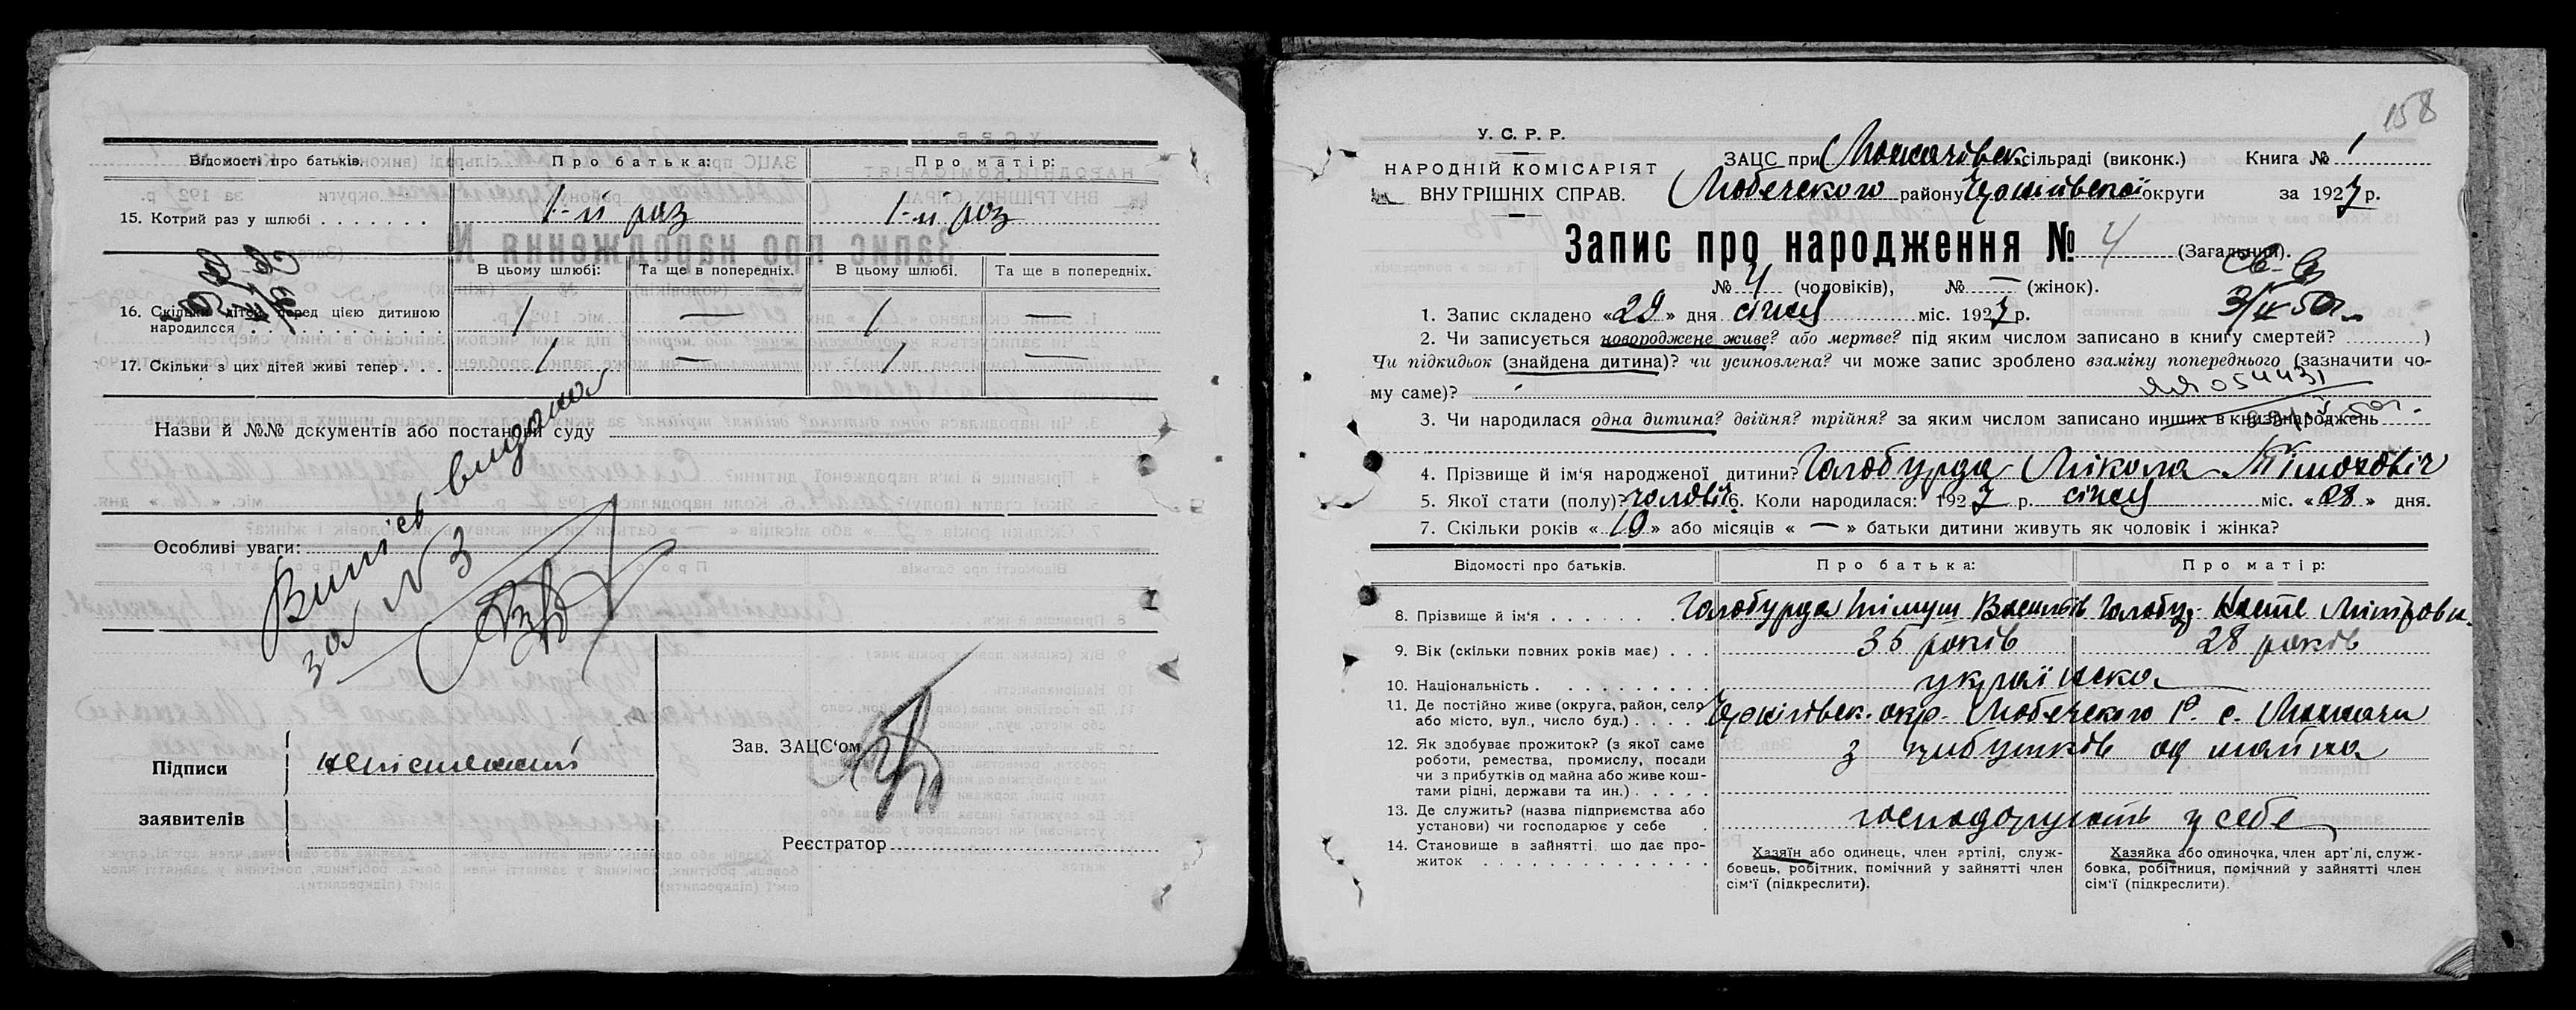 Відомості про батьків. Про батька: Про матір:
15. Котрий раз у шлюбі 1-й раз 1-й раз
В цьому шлюбі: Та ще в попередніх. В цьому шлюбі. Та ще в попередніх.
16. Скільки дітей перед цією дитиною народилося 1 — 1 —
17. Скільки з цих дітей живі тепер 1 — 1 —
Назви й №№ документів або постанови суду
Особливі уваги:
Випісь видана
за N 3
Підписи
заявителів
Зав. ЗАЦС'ом
Реєстратор
158
У. С. Р. Р.
НАРОДНІЙ КОМІСАРІЯТ
ВНУТРІШНІХ СПРАВ.
ЗАЦС при сільраді (виконк.) Книга № 1
Любечского району округи за 1927 р.
Запис про народження № 4 (Загальний).
№ 4 (чоловіків), № — (жінок).
3/IV 50г.
1. Запис складено «29» дня січня міс. 1927 р.
2. Чи записується новороджене живе? або мертве? під яким числом записано в книгу смертей? )
Чи підкидьок (знайдена дитина)? чи усиновлена? чи може запис зроблено взаміну попереднього (зазначити чо-
му саме)?
ЯЯ 054431
3. Чи народилася одна дитина? двійня? трійня? за яким числом записано инших в книзі народжень
4. Прізвище й ім'я народженої дитини? Голобурда Мікола Тімохвіч
5. Якої стати (полу)? чоловіч 6. Коли народилася: 1927 р. січня міс. «28» дня.
7. Скільки років «10» або місяців «—» батьки дитини живуть як чоловік і жінка?
Відомості про батьків. Про батька: Про матір:
8. Прізвище й ім'я Голобурда Тімуш Васильів Голобур.
9. Вік (скільки повних років має) 35 років 28 років
10. Національність українска
11. Де постійно живе (округа, район, село
або місто, вул., число буд.) окр. Любечского Р. с.
12. Як здобуває прожиток? (з якої саме
роботи, ремества, промислу, посади
чи з прибутків од майна або живе кош-
тами рідні, держави та ин.)
з прибутків од майна
13. Де служить? (назва підприємства або
установи) чи господарює у себе
господарують у себе
14. Становище в зайнятті, що дає про-
житок
Хазяїн або одинець, член артілі, служ-
бовець, робітник, помічний у зайнятті член
сім'ї (підкреслити).
Хазяйка або одиночка, член арт'лі, служ-
бовка, робітниця, помічний у зайнятті член
сім'ї (підкреслити).